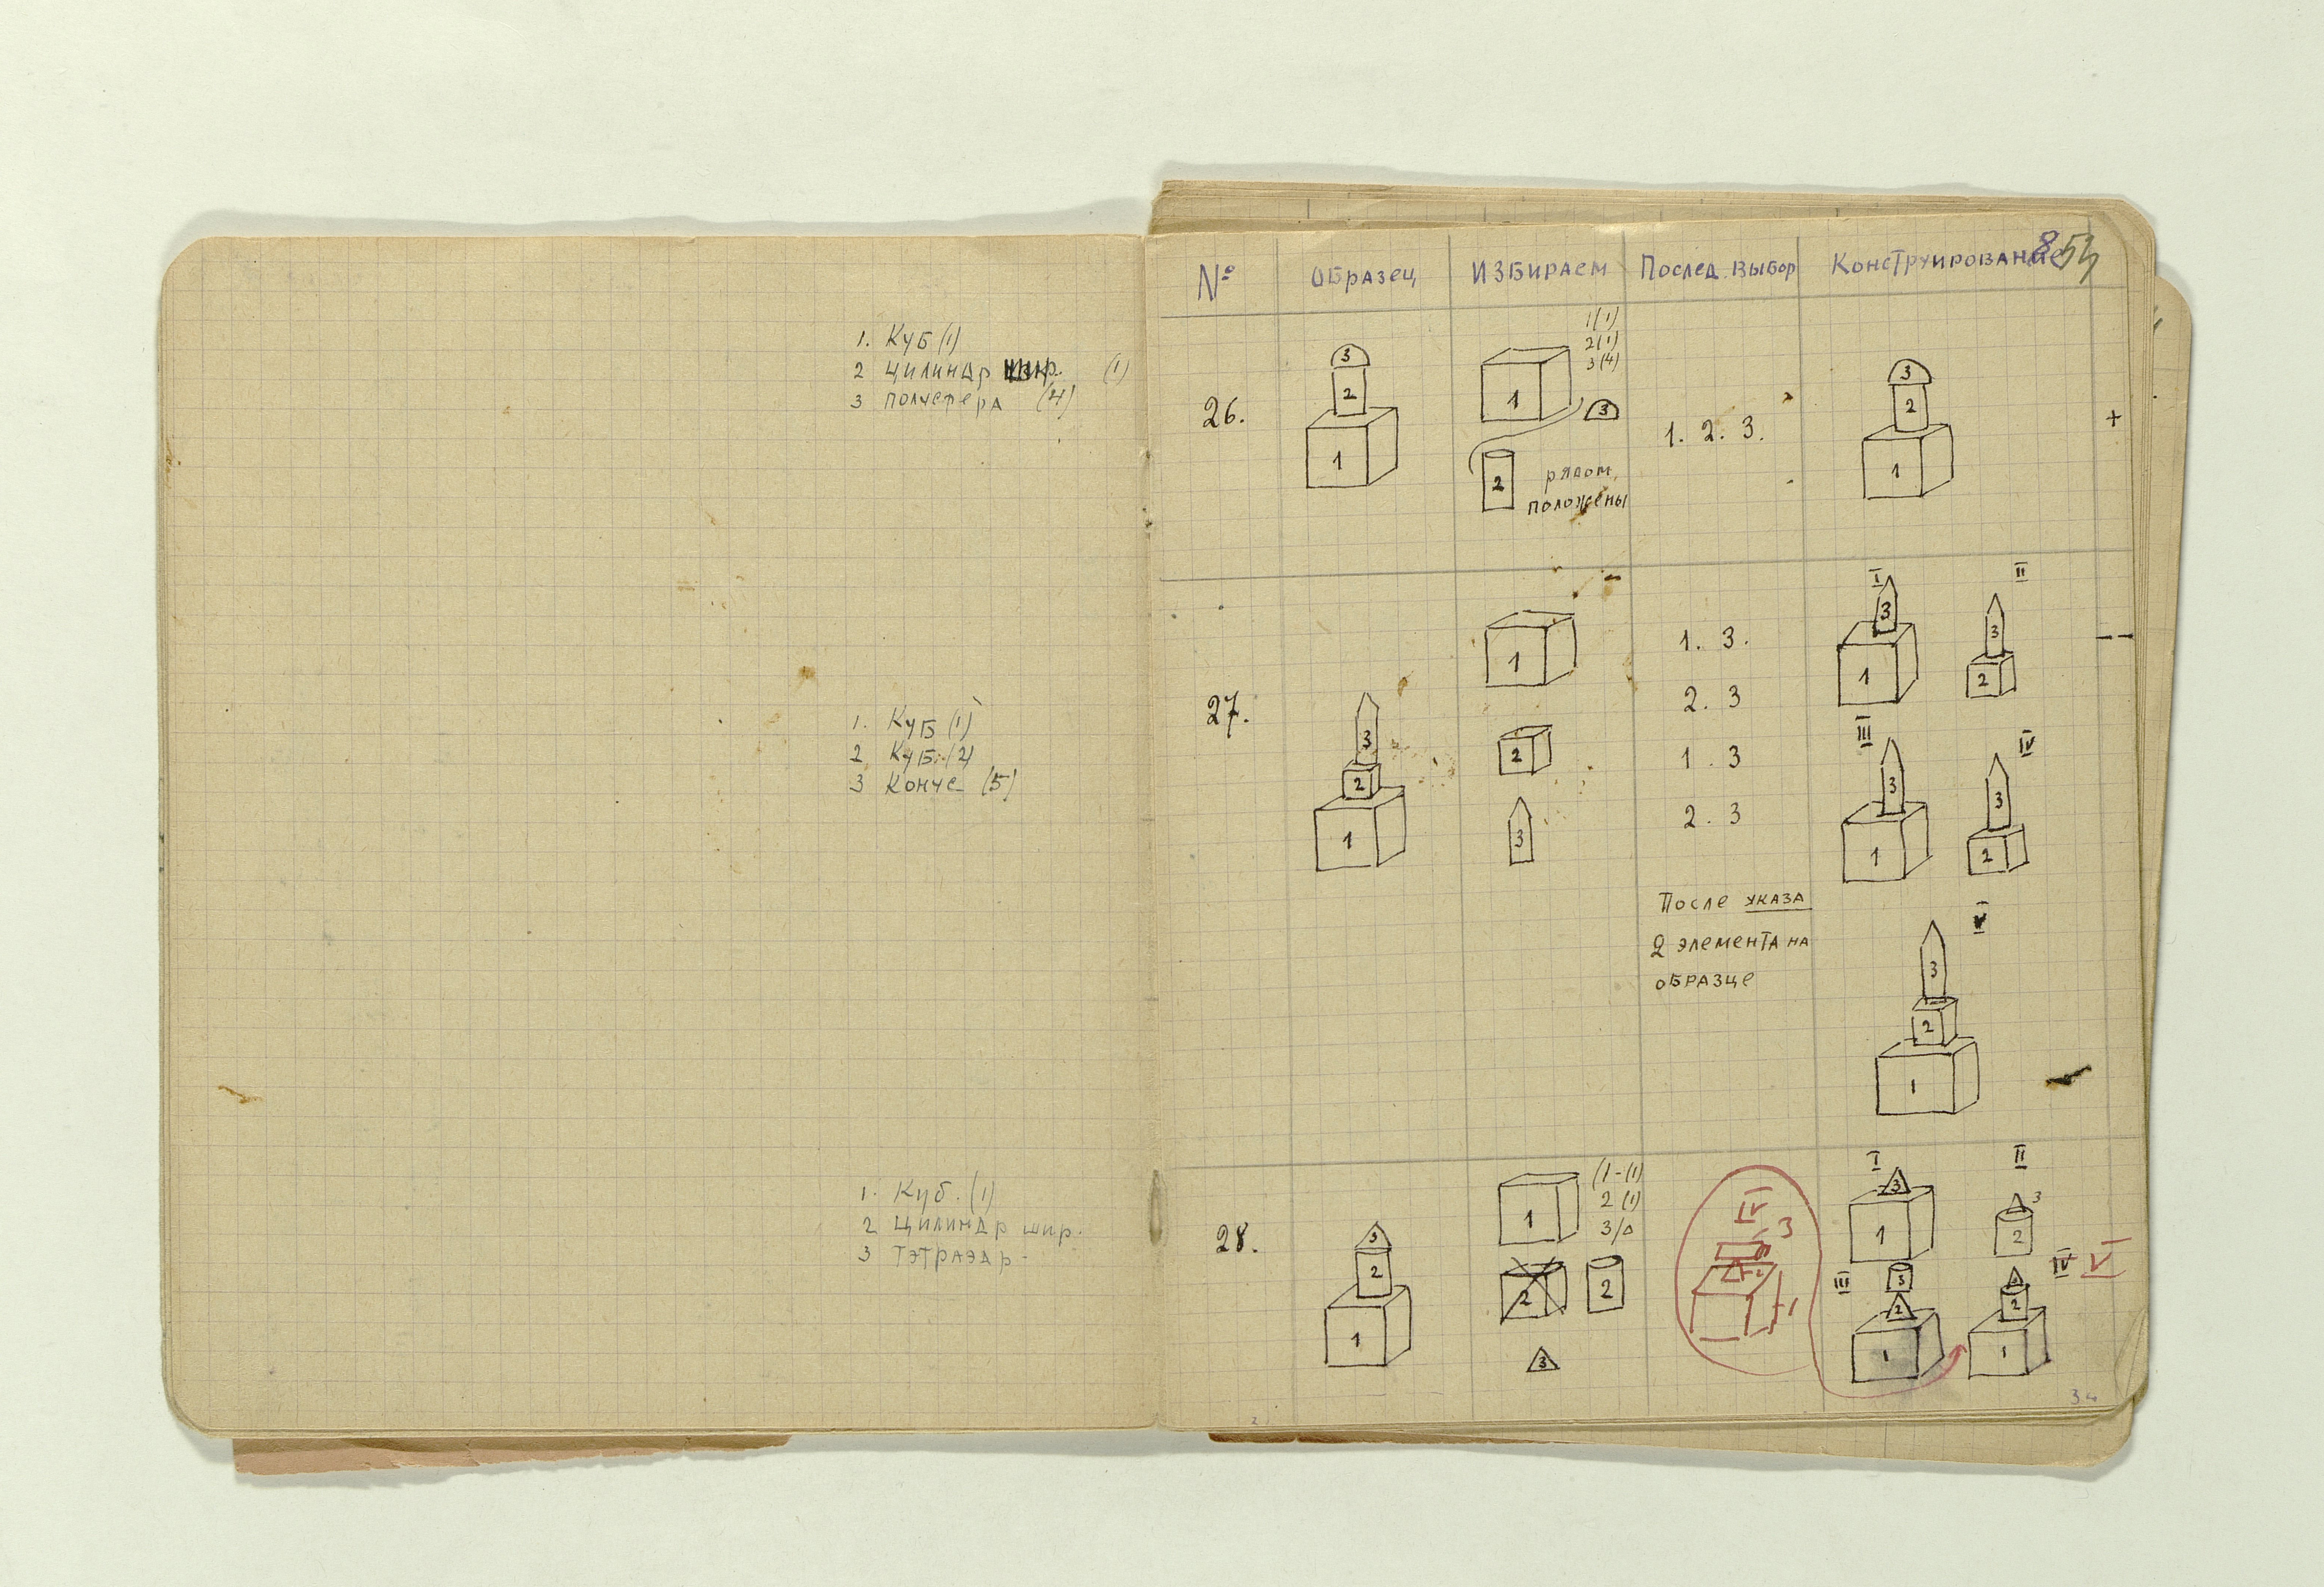 1. Куб (1)
2 цилиндр шир. (1)
3 полусфера (4)
1. Куб (1)
2 Куб (2)
3 Конус (5)
1. Куб. (1)
2 Цилиндр шир.
3 Тэтраэдр
№ Образец Избираем Послед. выбор Конструирование
8
26.
3
2
1
1(1)
2(1)
3(4)
1
3
2
рядом
положены
1. 2. 3.
3
2
1
+
27.
3
2
1
1
2
3
1. 3.
2. 3
1. 3
2. 3
После указа
2 элемента на
образце
I
3
1
II
3
2
III
3
1
IV
3
2
V
3
2
1
28.
3
2
1
1
(1-(1)
2 (1)
3/△
2
2
3
IV
3
2
1
I
3
1
II
3
2
III
3
2
1
IV V
2
1